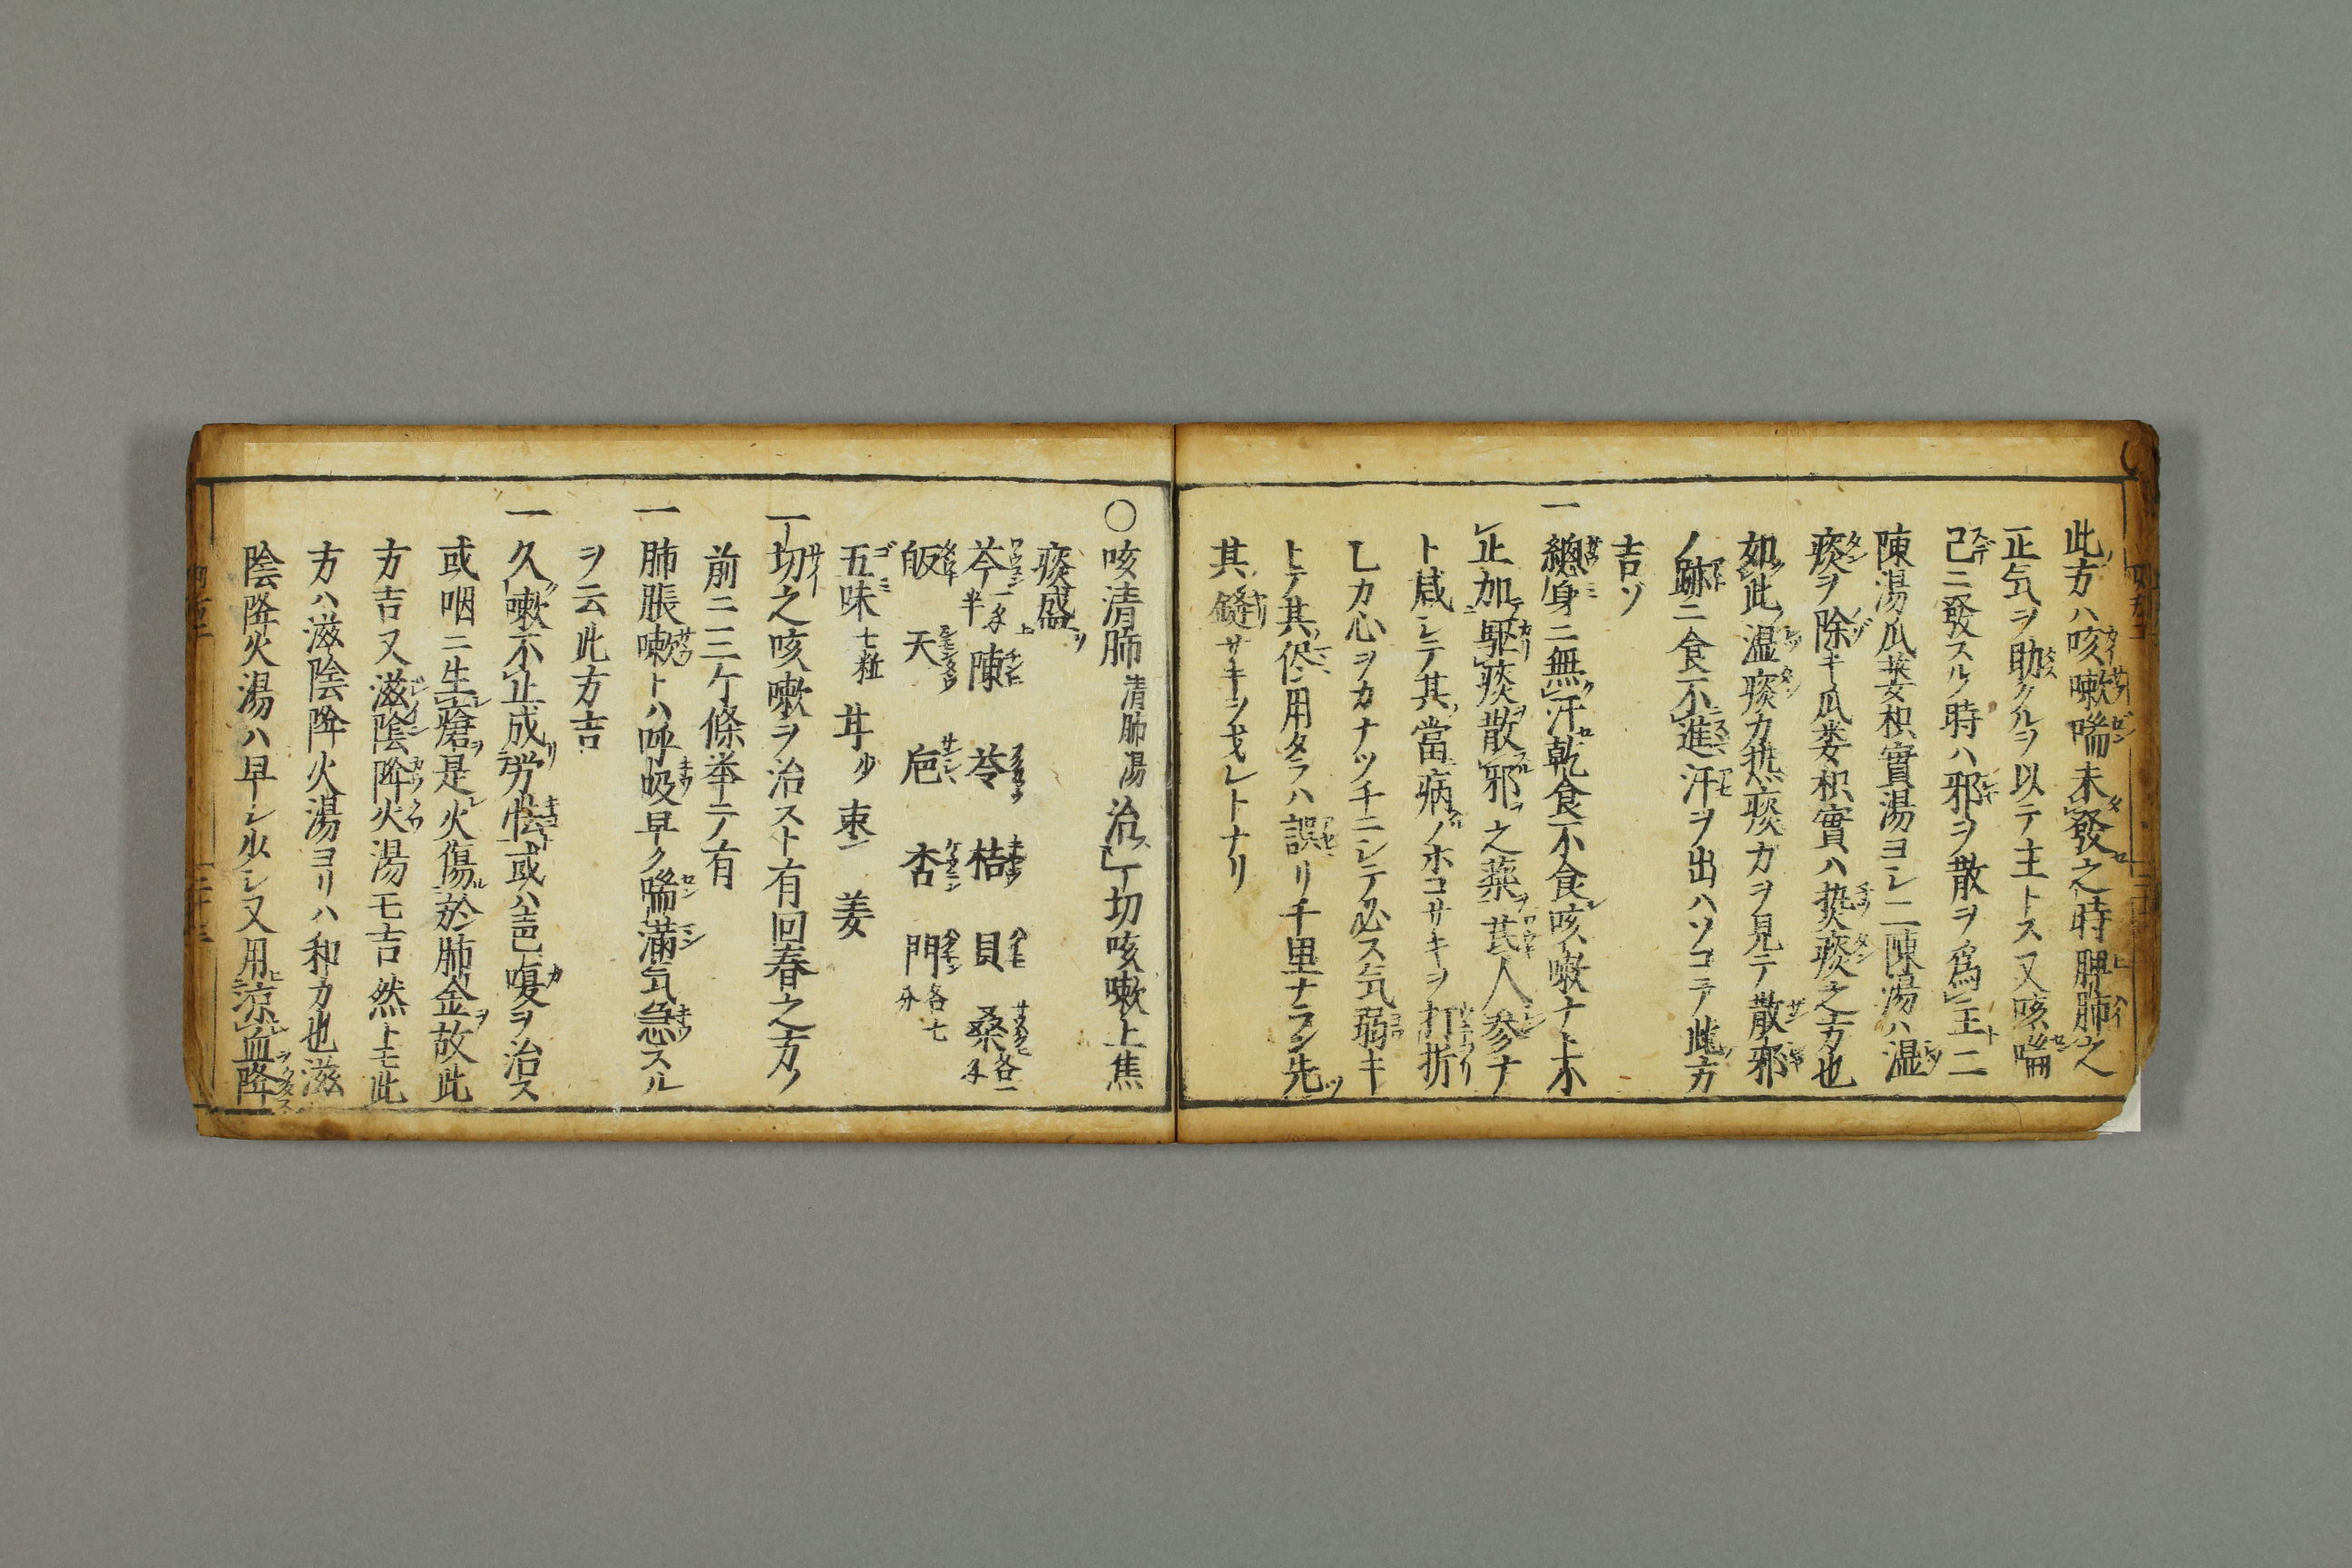 此方ハ咳嗽喘未發之時脾肺之
正気ヲ助クルヲ以テ主トス又咳喘
已ニ發スルノ時ハ邪ヲ散ヲ爲主二
陳湯瓜蔞枳實湯ヨシ二陳湯ハ温
痰ヲ除キ瓜蔞枳實ハ熱痰之方也
如此温痰カ熱痰カヲ見テ散邪
ノ跡ニ食不進汗ヲ出ハソコテ此方
吉ソ
一總身ニ無汗乾食不食咳嗽ナト不
止加駆痰散邪之薬芪人参ナ
ト咸シテ其當病ノホコサキヲ打折
乙カ心ヲカナツチニシテ必ス気弱キ
トテ其侭用タラハ誤リ千里ナラン先ツ
其縫サキヲ戈レトナリ
○咳清肺 清肺湯 治一切咳嗽上焦
痰盛
芩一戔半 陳 苓 桔 貝 桑各一戔
皈 天 巵 杏 門各七分
五味七粒 甘少 棗二 姜
一一切之咳嗽ヲ治スト有回春之方ノ
前ニ三ケ條挙テ有
一肺脹嗽トハ呼吸早ク喘満気急スル
ヲ云此方吉
一久嗽不止成労怯或ハ音嗄ヲ治ス
或咽ニ生瘡是火傷於肺金故此
方吉又滋陰降火湯モ吉然トモ此
方ハ滋陰降火湯ヨリハ和カ也滋
陰降火湯ハ早シ少シ又用涼血降